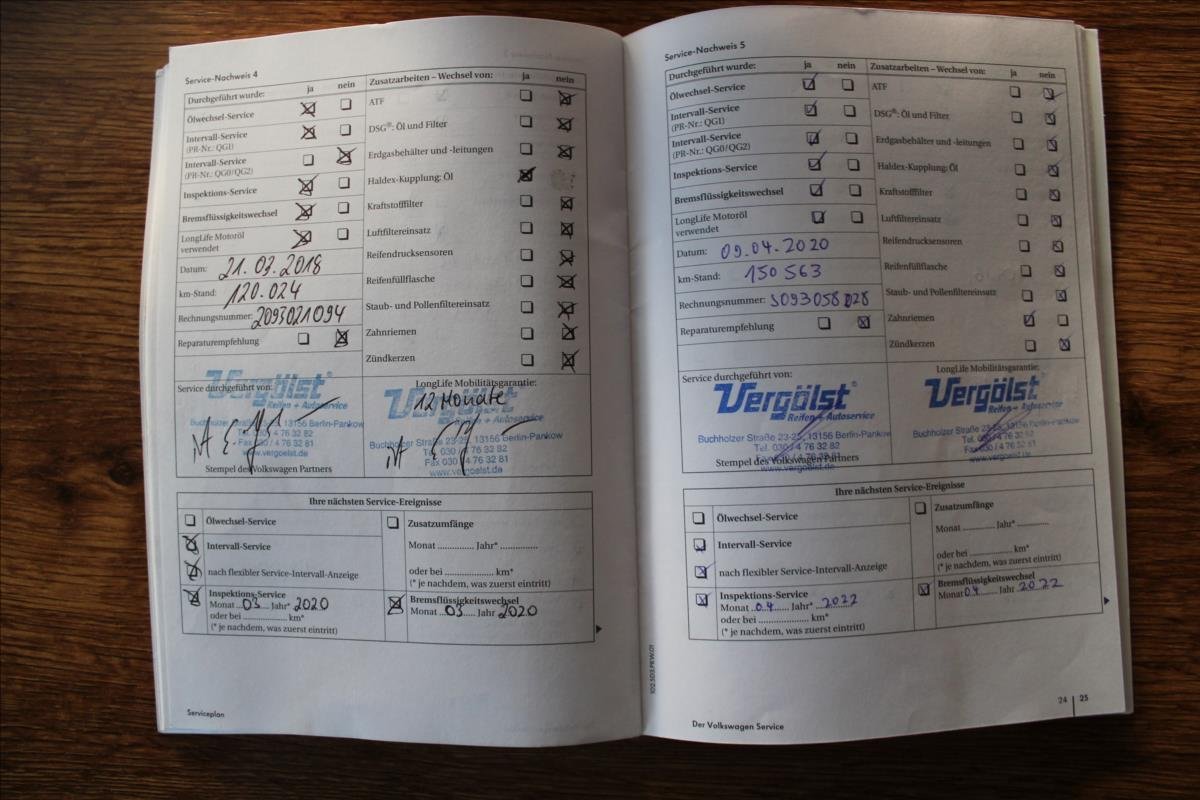 Service-Nachweis 4
Durchgeführt wurde: ja nein
Ölwechsel-Service
Intervall-Service
(PR-Nr.: QG1)
Intervall-Service
(PR-Nr.: QG0/QG2)
Inspektions-Service
Bremsflüssigkeitswechsel
LongLife Motoröl
verwendet
Datum: 21.03.2018
km-Stand: 120.024
Rechnungsnummer: 2093021094
Reparaturempfehlung
Zusatzarbeiten – Wechsel von: ja nein
ATF
DSG®: Öl und Filter
Erdgasbehälter und -leitungen
Haldex-Kupplung: Öl
Kraftstofffilter
Luftfiltereinsatz
Reifendrucksensoren
Reifenfüllflasche
Staub- und Pollenfiltereinsatz
Zahnriemen
Zündkerzen
Service durchgeführt von:
Vergölst
Reifen + Autoservice
Buchholzer Straße 23-25, 13156 Berlin-Pankow
Tel. 030 / 4 76 32 82
Fax 030 / 4 76 32 81
Stempel des Volkswagen Partners
LongLife Mobilitätsgarantie:
12 Monate
Vergölst
Reifen + Autoservice
Buchholzer Straße 23-25, 13156 Berlin-Pankow
Tel. 030 / 4 76 32 82
Fax 030 / 4 76 32 81
www.vergoelst.de
Ihre nächsten Service-Ereignisse
Ölwechsel-Service
Intervall-Service
nach flexibler Service-Intervall-Anzeige
Inspektions-Service
Monat 03 Jahr* 2020
oder bei .................. km*
(* je nachdem, was zuerst eintritt)
Zusatzumfänge
Monat ............. Jahr* .............
oder bei .................. km*
(* je nachdem, was zuerst eintritt)
Bremsflüssigkeitswechsel
Monat 03 Jahr 2020
Serviceplan
Service-Nachweis 5
Durchgeführt wurde: ja nein
Ölwechsel-Service
Intervall-Service
(PR-Nr.: QG1)
Intervall-Service
(PR-Nr.: QG0/QG2)
Inspektions-Service
Bremsflüssigkeitswechsel
LongLife Motoröl
verwendet
Datum: 09.04.2020
km-Stand: 150 563
Rechnungsnummer: S093058028
Reparaturempfehlung
Zusatzarbeiten – Wechsel von: ja nein
ATF
DSG®: Öl und Filter
Erdgasbehälter und -leitungen
Haldex-Kupplung: Öl
Kraftstofffilter
Luftfiltereinsatz
Reifendrucksensoren
Reifenfüllflasche
Staub- und Pollenfiltereinsatz
Zahnriemen
Zündkerzen
Service durchgeführt von:
Vergölst
Reifen + Autoservice
Buchholzer Straße 23-25, 13156 Berlin-Pankow
Tel. 030 / 4 76 32 82
Fax 030 / 4 76 32 81
www.vergoelst.de
Stempel des Volkswagen Partners
LongLife Mobilitätsgarantie:
Vergölst
Reifen + Autoservice
Buchholzer Straße 23-25, 13156 Berlin-Pankow
Tel. 030 / 4 76 32 82
Fax 030 / 4 76 32 81
www.vergoelst.de
Ihre nächsten Service-Ereignisse
Ölwechsel-Service
Intervall-Service
nach flexibler Service-Intervall-Anzeige
Inspektions-Service
Monat 04 Jahr* 2022
oder bei .................. km*
(* je nachdem, was zuerst eintritt)
Zusatzumfänge
Monat ............. Jahr* .............
oder bei .................. km*
(* je nachdem, was zuerst eintritt)
Bremsflüssigkeitswechsel
Monat 04 Jahr 2022
102.5D3.PKW.01
Der Volkswagen Service
24 | 25